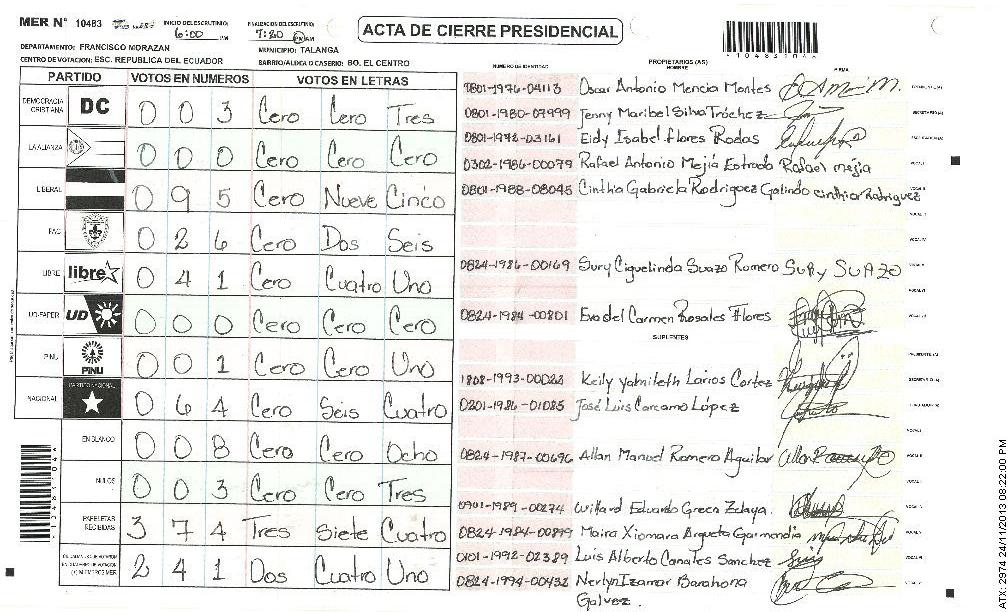 MER N° 10483 INICIO DEL ESCRUTINIO: 6:00 PM FINALIZACION DEL ESCRUTINIO: 7:20 PM AM
ACTA DE CIERRE PRESIDENCIAL
*10483104*
DEPARTAMENTO: FRANCISCO MORAZAN MUNICIPIO: TALANGA
CENTRO DE VOTACION: ESC. REPUBLICA DEL ECUADOR BARRIO/ALDEA O CASERIO: BO. EL CENTRO
PARTIDO VOTOS EN NUMEROS VOTOS EN LETRAS
DEMOCRACIA CRISTIANA DC 0 0 3 Cero Cero Tres
LA ALIANZA 0 0 0 Cero Cero Cero
LIBERAL 0 9 5 Cero Nueve Cinco
PAC 0 2 6 Cero Dos Seis
LIBRE libre 0 4 1 Cero Cuatro Uno
UD-FAPER UD 0 0 0 Cero Cero Cero
PINU PINU 0 0 1 Cero Cero Uno
NACIONAL PARTIDO NACIONAL 0 6 4 Cero Seis Cuatro
EN BLANCO 0 0 8 Cero Cero Ocho
NULOS 0 0 3 Cero Cero Tres
PAPELETAS RECIBIDAS 3 7 4 Tres Siete Cuatro
2 4 1 Dos Cuatro Uno
NUMERO DE IDENTIDAD PROPIETARIOS (AS) NOMBRE FIRMA
0801-1976-04113 Oscar Antonio Mencia Montes
0801-1980-07999 Jenny Maribel Silva Tróchez
0801-1972-03161 Eidy Isabel Flores Rodas
0302-1986-00079 Rafael Antonio Mejía Estrada Rafael mejia
0801-1988-08045 Cinthia Gabriela Rodriguez Galindo cinthia Rodriguez
0824-1986-00169 Sury Ciguelinda Suazo Romero Sury SUAZO
0824-1984-00801 Eva del Carmen Rosales Flores
SUPLENTES
1808-1993-00028 Keily yamileth Larios Cortez
0201-1986-01085 José Luis Carcamo López
0824-1987-00696 Allan Manuel Romero Aguilar
0901-1989-00274 Willard Eduardo Greca Zelaya.
0824-1984-00899 Maira Xiomara Argueta Garmendia
0101-1992-02389 Luis Alberto Canales Sanchez
0824-1994-00432 Nerlyn Izamar Barahona
Galvez.
ATX-2974 24/11/2013 08:22:00 PM